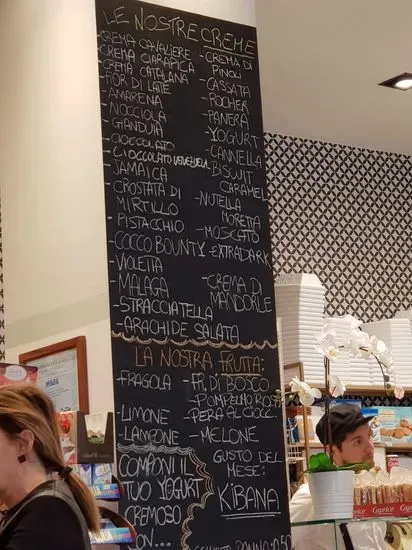 LE NOSTRE CREME
-CREMA CAVALIERE
CREMA
CREMA CATALANA
FIOR DI LATE
-AMARENA
-NOCCIOLA
-GIANDUIA
-CIOCCOLATO
-CIOCCOLATO VENEZUELA
-JAMAICA
-CROSTATA DI
MIRTILLO
-PISTACCHIO
-COCCO BOUNTY
-VIOLETTA
-MALAGA
-STRACCIATELLA
-ARACHIDE SALATA
-CREMA DI
PINOLI
-CASSATA
-ROCHER
-PANERA
-YOGURT
-CANNELLA
-BISCUIT
CARAMEL
-NUTELLA
MORETTA
-MOSCATO
-EXTRADARK
-CREMA DI
MANDORLE
LA NOSTRA FRUTTA:
FRAGOLA
-LIMONE
-LAMPONE
-FR. DI BOSCO
-POMPELMO ROSA
-PERA AL CIOCC.
-MELONE
GUSTO DEL
MESE:
KIBANA
COMPONI IL
TUO YOGURT
CREMOSO
CON...
PANNA
Caprice
Caprice